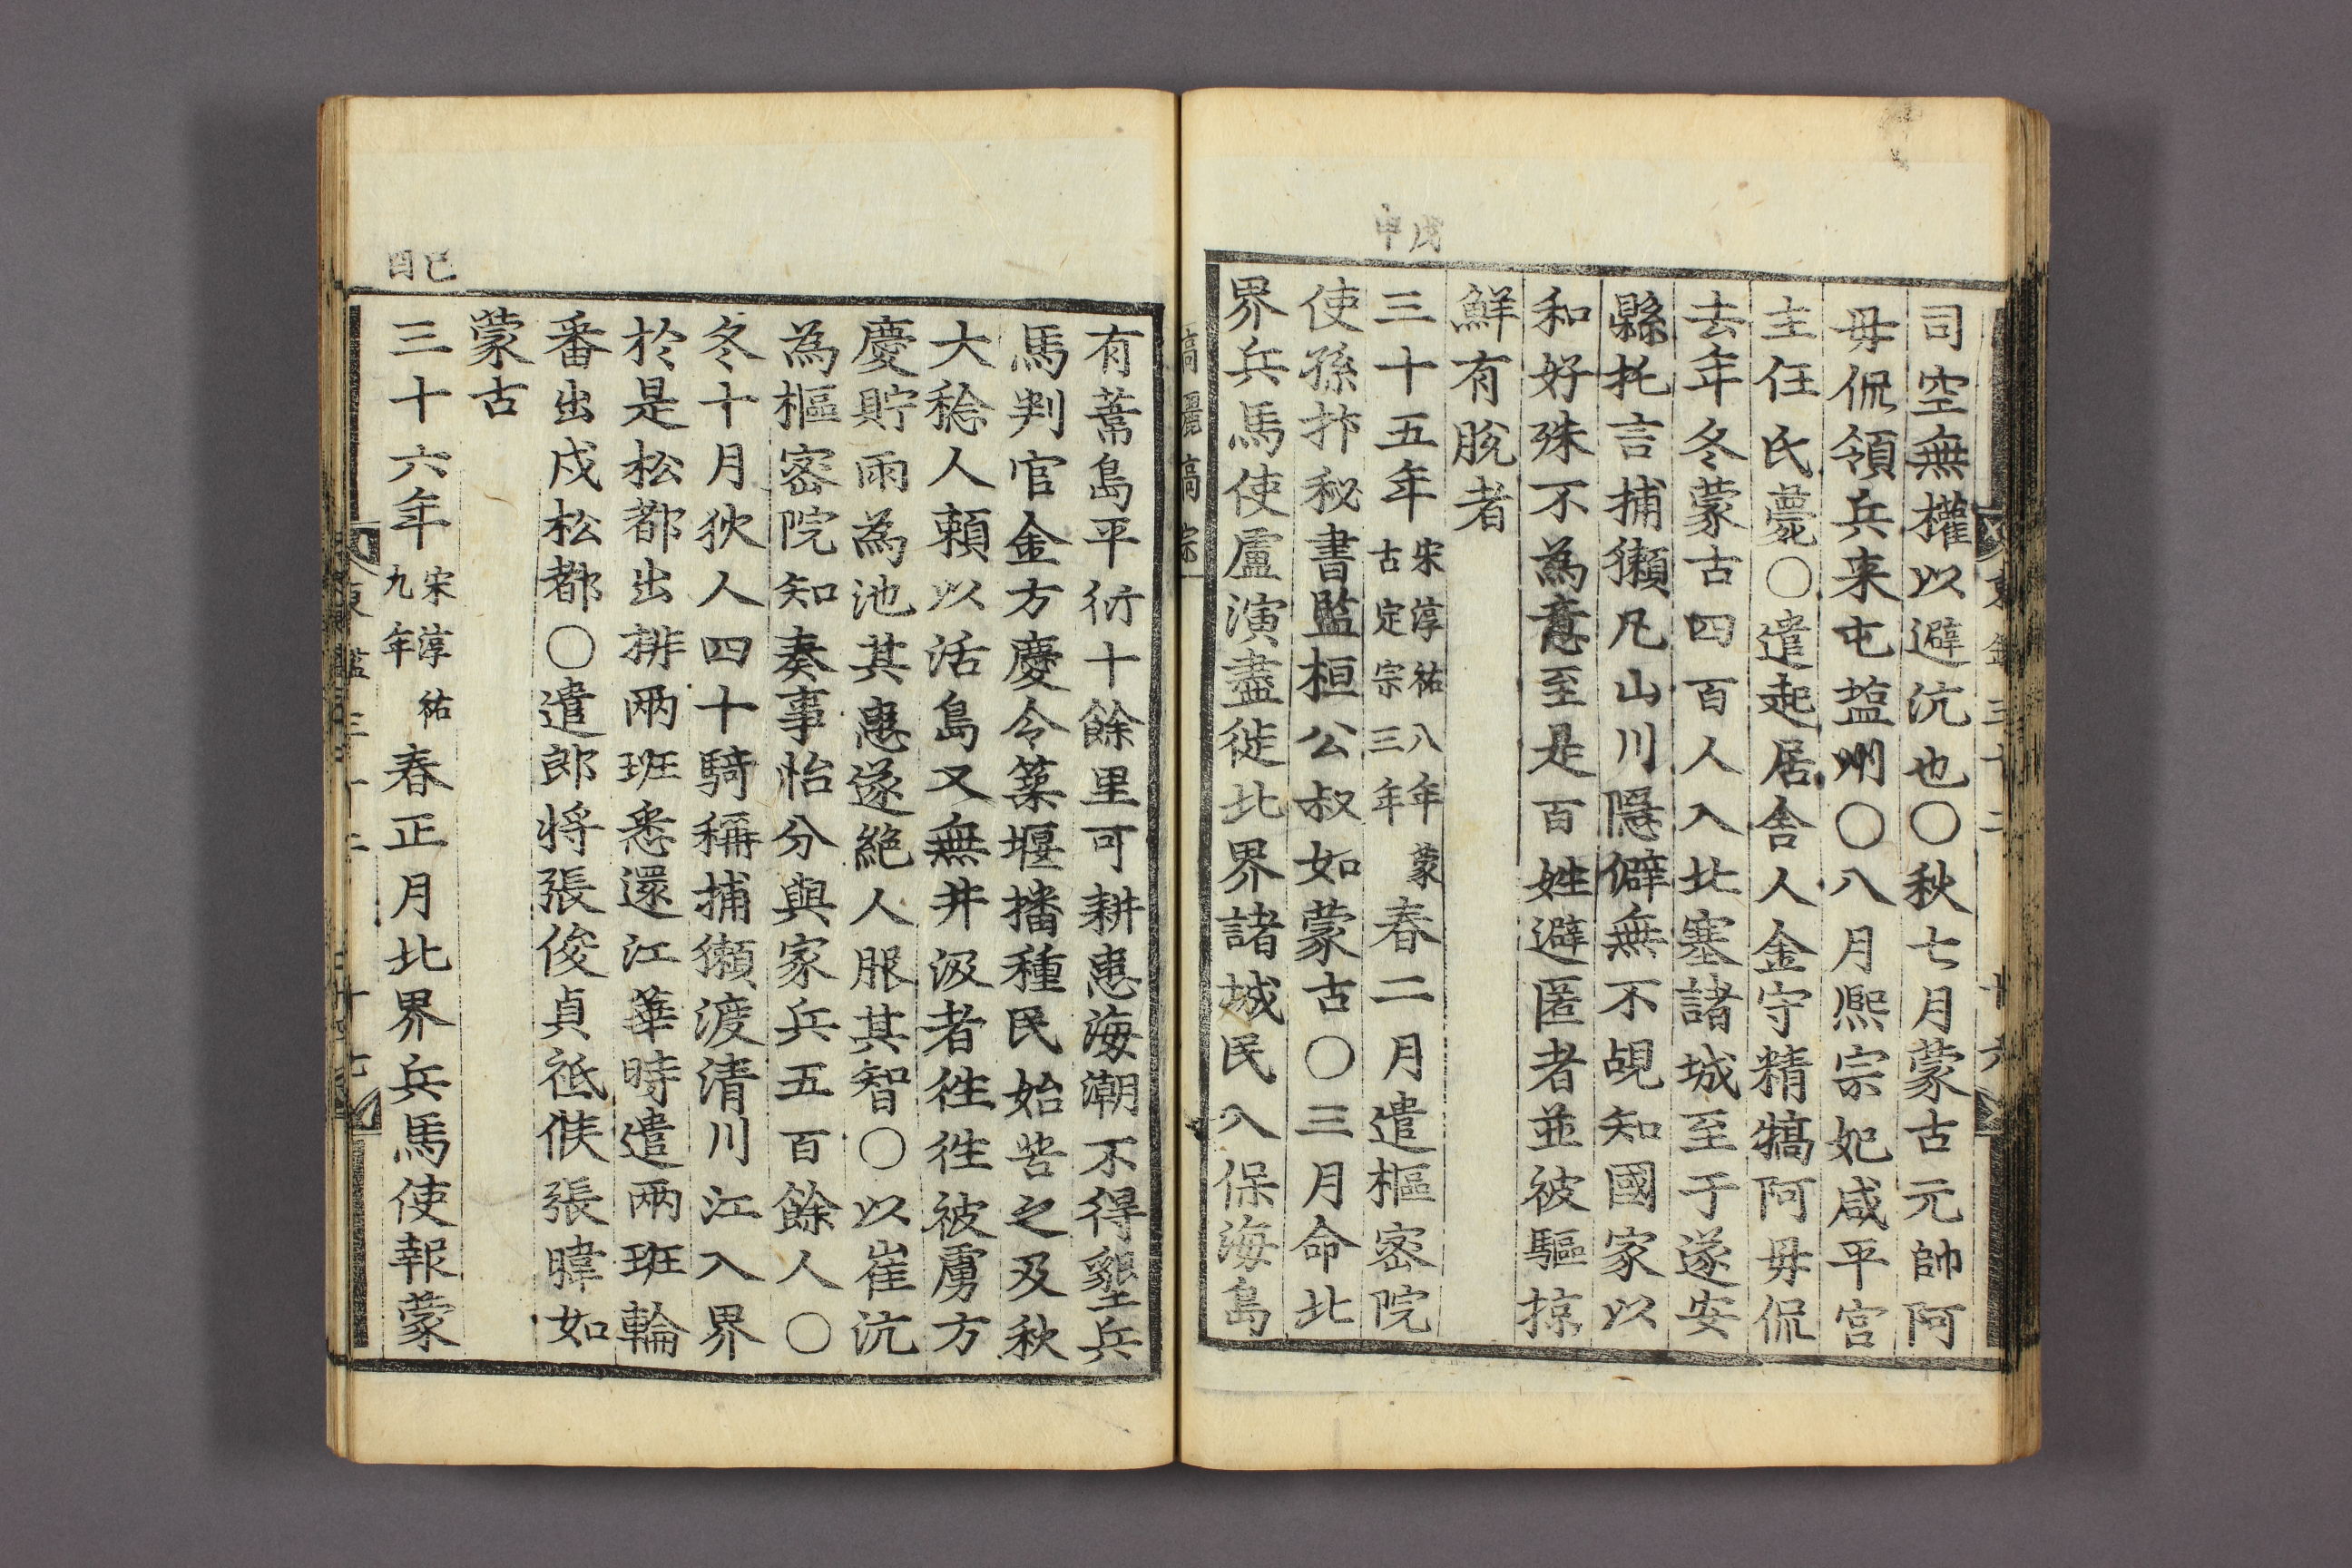 司空無權以避沆也〇秋七月蒙古元帥阿
毋侃領兵来屯塩州〇八月熙宗妃咸平宮
主任氏薨〇遣起居舍人金守精犒阿毋侃
去年冬蒙古四百人入北塞諸城至于遂安
縣托言捕獺凡山川隱僻無不覘知國家以
和好殊不為意至是百姓避匿者並被驅掠
鮮有脫者
戊申
三十五年宋淳祐八年蒙古定宗三年春二月遣樞密院
使孫抃秘書監桓公叔如蒙古〇三月命北
界兵馬使盧演盡徙北界諸城民入保海島
有葦島平衍十餘里可耕患海潮不得墾兵
馬判官金方慶令築堰播種民始苦之及秋
大稔人頼以活島又無井汲者徃徃被虜方
慶貯雨為池其患遂絶人服其智〇以崔沆
為樞密院知奏事怡分與家兵五百餘人〇
冬十月狄人四十騎稱捕獺渡清川江入界
於是松都出排兩班悉還江華時遣兩班輪
番出戍松都〇遣郎将張俊貞祗候張暐如
蒙古
己酉
三十六年宋淳祐九年春正月北界兵馬使報蒙